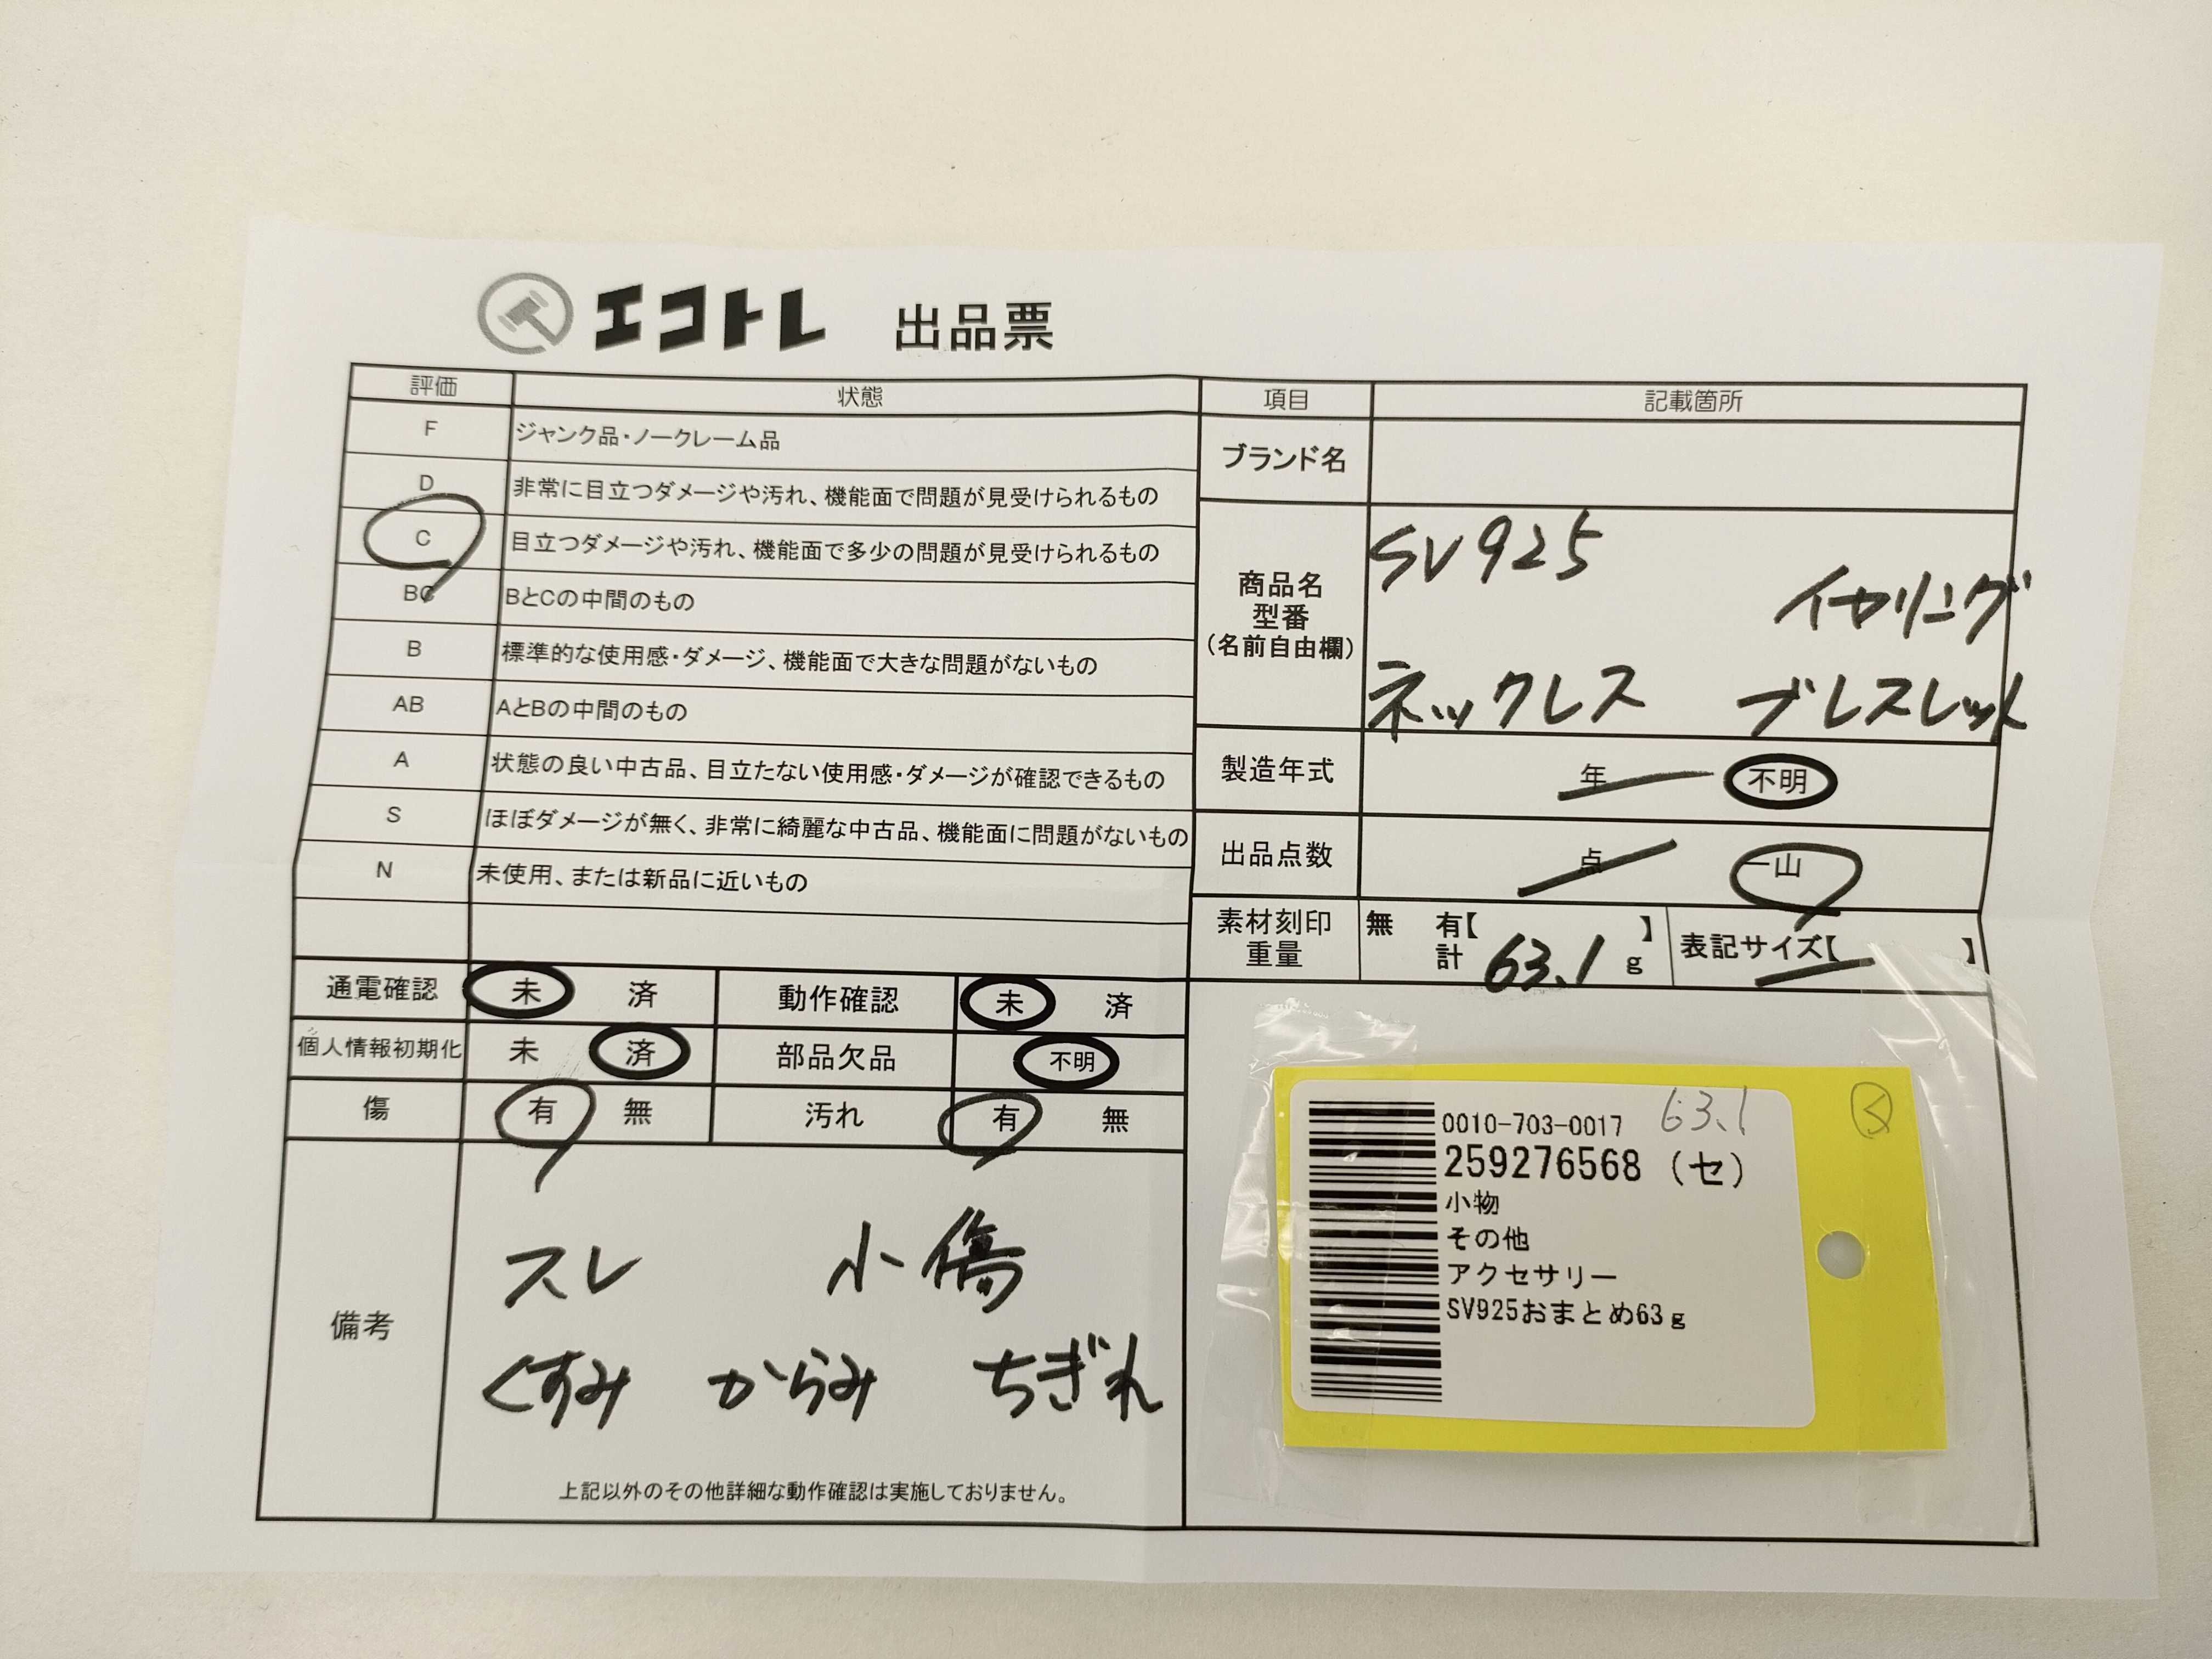 エコトレ 出品票
評価 状態 項目 記載箇所
F ジャンク品・ノークレーム品
D 非常に目立つダメージや汚れ、機能面で問題が見受けられるもの
C 目立つダメージや汚れ、機能面で多少の問題が見受けられるもの
BC BとCの中間のもの
B 標準的な使用感・ダメージ、機能面で大きな問題がないもの
AB AとBの中間のもの
A 状態の良い中古品、目立たない使用感・ダメージが確認できるもの
S ほぼダメージが無く、非常に綺麗な中古品、機能面に問題がないもの
N 未使用、または新品に近いもの
ブランド名
商品名
型番
(名前自由欄)
SV925
イヤリング
ネックレス ブレスレット
製造年式 年 不明
出品点数 点 一山
素材刻印 無 有【 】
重量 計 63.1 g
表記サイズ【 】
通電確認 未 済 動作確認 未 済
個人情報初期化 未 済 部品欠品 不明
傷 有 無 汚れ 有 無
備考
スレ 小傷
くすみ からみ ちぎれ
上記以外のその他詳細な動作確認は実施しておりません。
0010-703-0017 63.1 く
259276568 (セ)
小物
その他
アクセサリー
SV925おまとめ63g